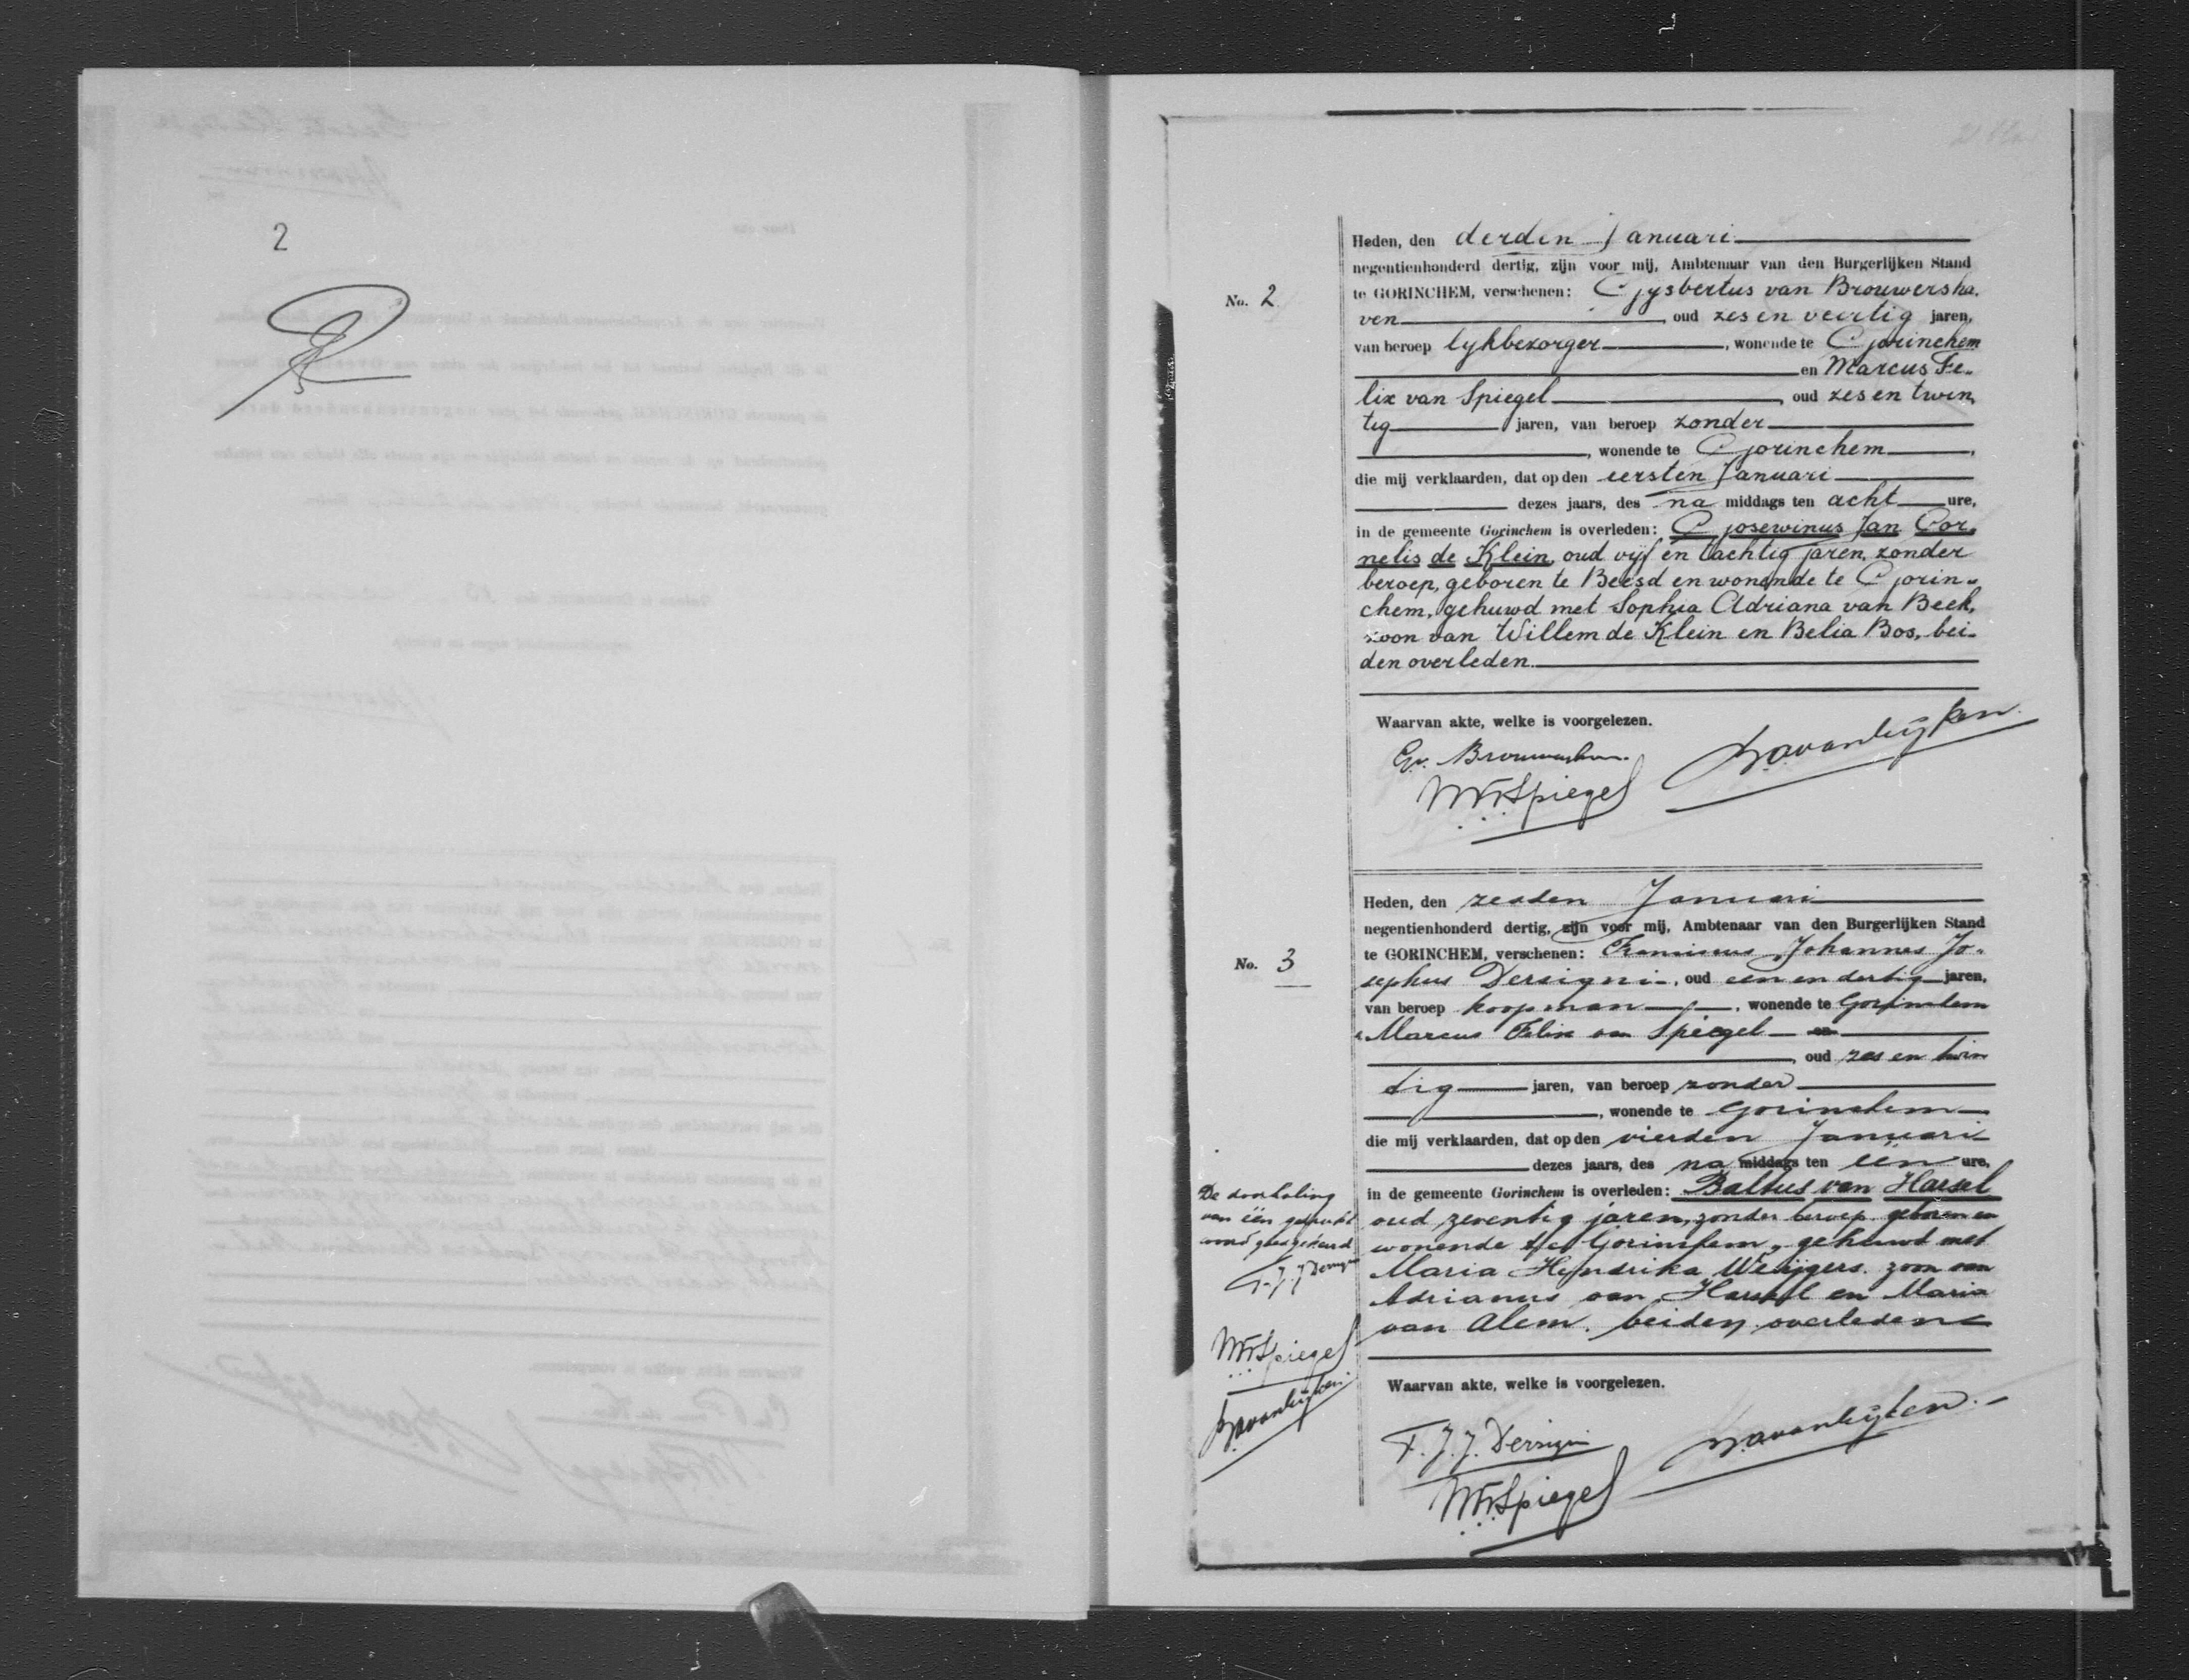 2
No. 2
Heden, den derden Januari
negentienhonderd dertig, zijn voor mij, Ambtenaar van den Burgerlijken Stand
te GORINCHEM, verschenen: Gysbertus van Brouwersha-
ven, oud zes en veertig jaren,
van beroep lykbezorger, wonende te Gorinchem
en Marcus Fe-
lix van Spiegel, oud zes en twin-
tig jaren, van beroep zonder
, wonende te Gorinchem,
die mij verklaarden, dat op den eersten Januari
dezes jaars, des na middags ten acht ure,
in de gemeente Gorinchem is overleden: Gosewinus Jan Cor-
nelis de Klein, oud vijf en tachtig jaren, zonder
beroep, geboren te Beesd en wonende te Gorin-
chem, gehuwd met Sophia Adriana van Beek,
zoon van Willem de Klein en Belia Bos, bei-
den overleden.
Waarvan akte, welke is voorgelezen.
Gv. Brouwershaven
MFvSpiegel
No. 3
Heden, den zesden Januari
negentienhonderd dertig, zijn voor mij, Ambtenaar van den Burgerlijken Stand
te GORINCHEM, verschenen: Franciscus Johannes Jo-
sephus Dersigni, oud een en dertig jaren,
van beroep koopman, wonende te Gorinchem
Marcus Felix van Spiegel en
, oud zes en twin
tig jaren, van beroep zonder
, wonende te Gorinchem
die mij verklaarden, dat op den vierden Januari
dezes jaars, des na middags ten een ure,
in de gemeente Gorinchem is overleden: Baltus van Harsel
oud zeventig jaren, zonder beroep geboren en
wonende te Gorinchem, gehuwd met
Maria Hendrika Weijgers. zoon van
Adrianus van Harssel en Maria
van Alem. beiden overleden
De doorhaling
van één gedrukt
woord goedgekeurd
F.J.J Dersigni
MFvSpiegel
Waarvan akte, welke is voorgelezen.
F.J.J. Dersigni
MFvSpiegel